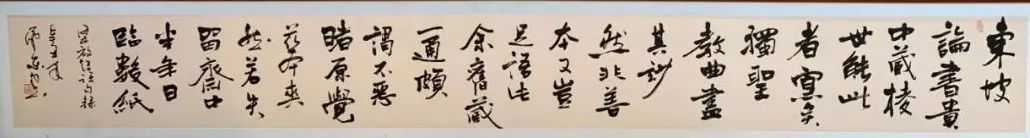 東坡
論書貴
中藏棱
世能此
者寡矣
獨聖
教曲盡
其妙
然非善
本又豈
足語此
余舊藏
一通頗
謂不惡
睹原覺
茲本爽
然若失
留齋中
半年日
臨數紙